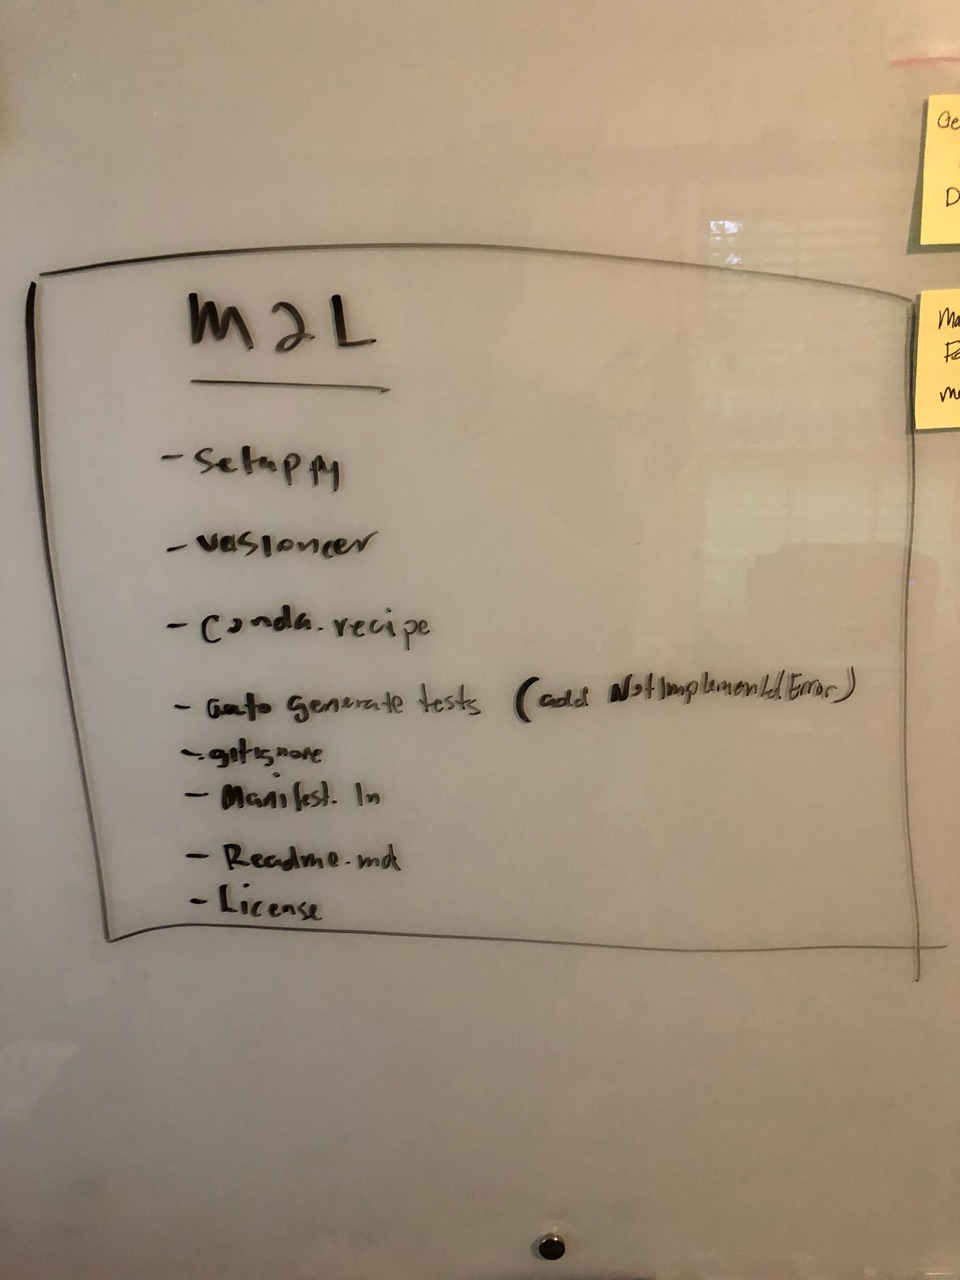 M2L
- Setup py
- vesioneer
- Conda.recipe
- auto generate tests (add NotImplementedError)
- .gitignore
- Manifest. In
- Readme.md
- License
Ge
D
Ma
Fe
me